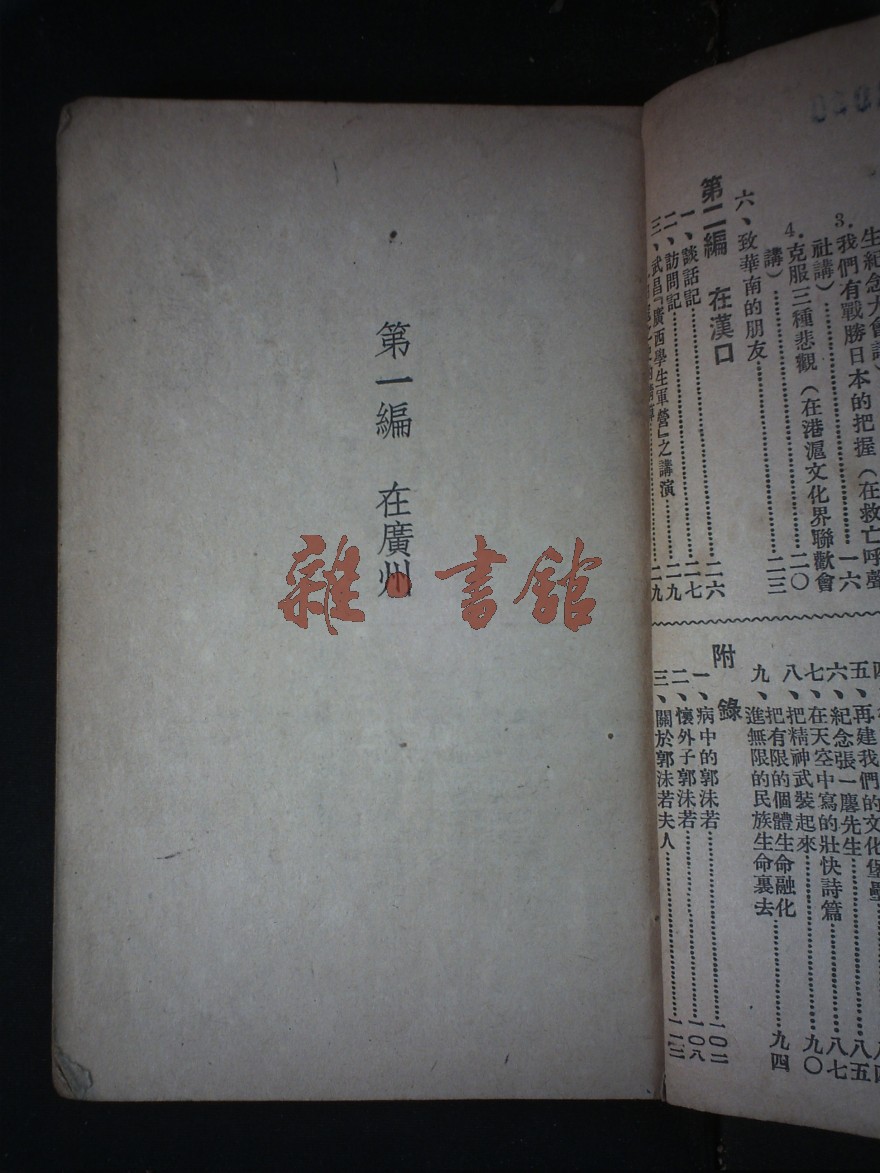 生紀念大會講）
3．我們有戰勝日本的把握（在救亡呼聲
社講）……一六
4．克服三種悲觀（在港滬文化界聯歡會
講）……二〇
六、致華南的朋友……二三
第二編　在漢口
一、談話記……二六
二、訪問記……二七
三、武昌「廣西學生軍營」之講演……二九
二九
五、再建我們的文化堡壘
六、紀念張一麐先生……八五
七、在天空中寫的壯快詩篇……八七
八、把精神武裝起來……九〇
九、把有限的個體生命融化
進無限的民族生命裏去……九四
附　錄
一、病中的郭沫若……一〇二
二、懷外子郭沫若……一〇八
三、關於郭沫若夫人……一一二
第一編　在廣州
雜·書館